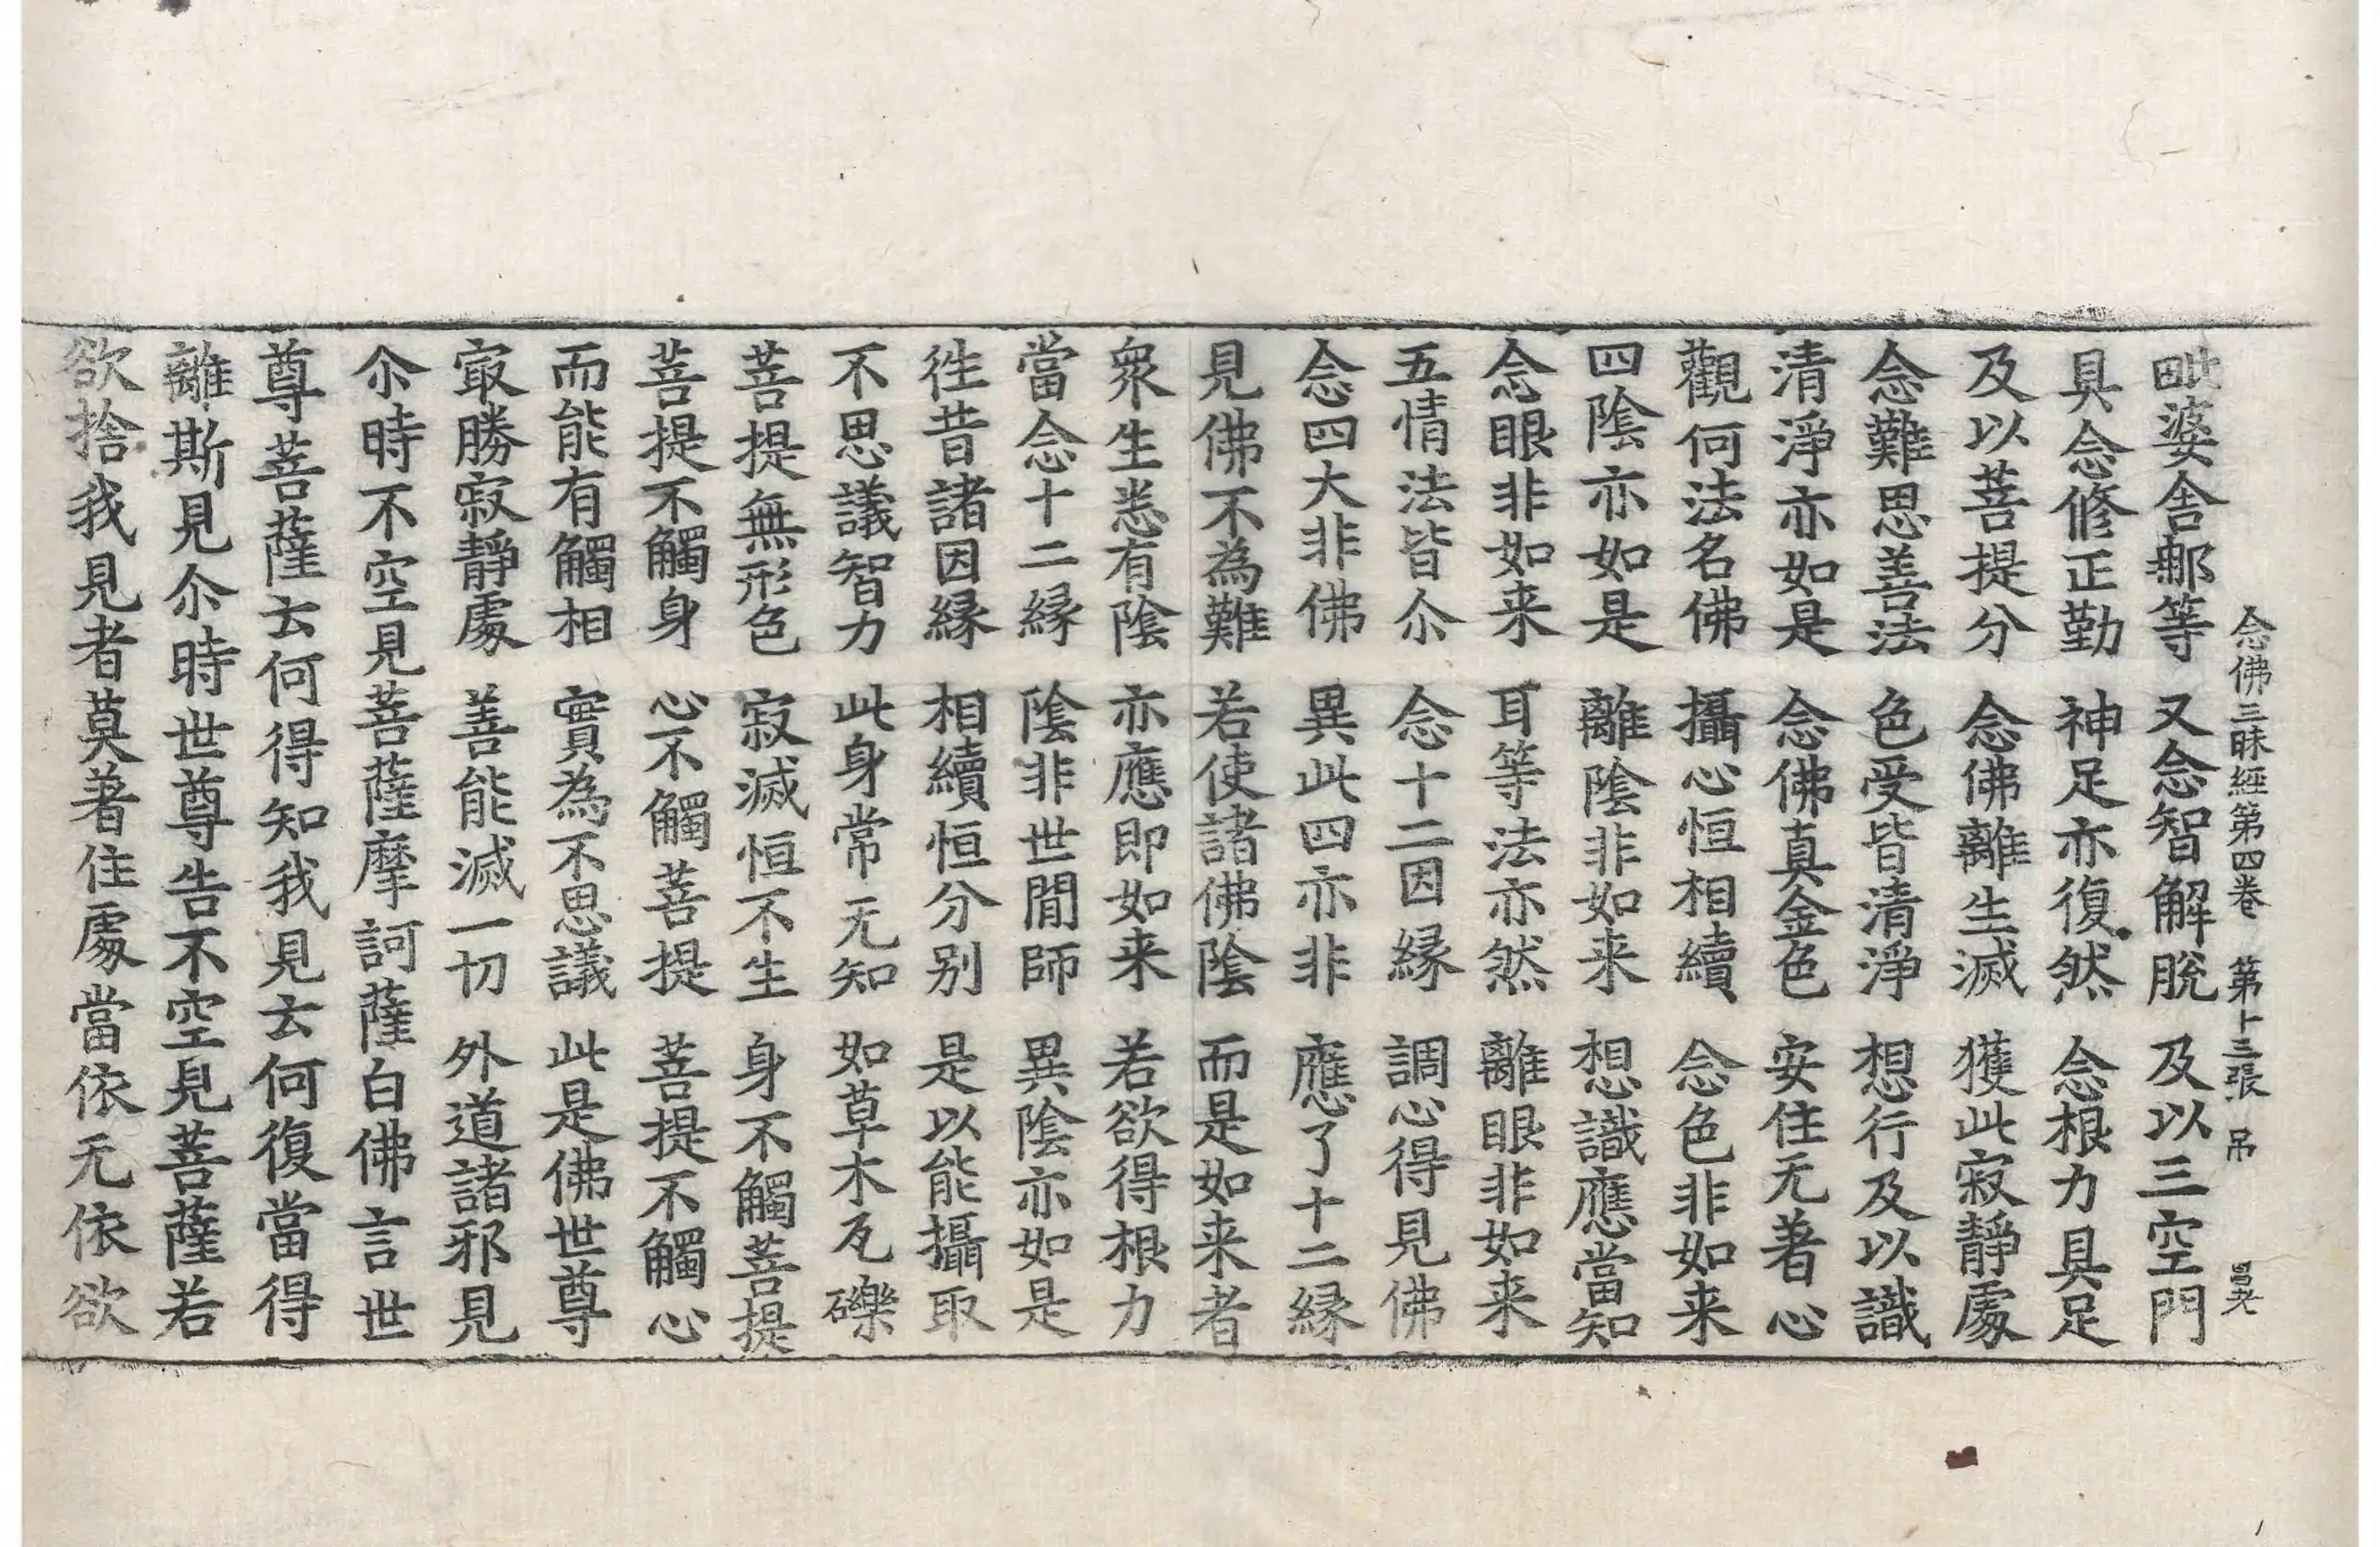 念佛三昧經第四卷　第十三張　吊
毗婆舍那等　又念智解脫　及以三空門
具念修正勤　神足亦復然　念根力具足
及以菩提分　念佛離生滅　獲此寂靜處
念難思善法　色受皆清淨　想行及以識
清淨亦如是　念佛真金色　安住无著心
觀何法名佛　攝心恒相續　念色非如来
四陰亦如是　離陰非如来　想識應當知
念眼非如来　耳等法亦然　離眼非如来
五情法皆尒　念十二因縁　調心得見佛
念四大非佛　異此四亦非　應了十二縁
見佛不為難　若使諸佛陰　而是如来者
衆生悉有陰　亦應即如来　若欲得根力
當念十二縁　陰非世間師　異陰亦如是
徃昔諸因縁　相續恒分别　是以能攝取
不思議智力　此身常无知　如草木瓦礫
菩提無形色　寂滅恒不生　身不觸菩提
菩提不觸身　心不觸菩提　菩提不觸心
而能有觸相　實為不思議　此是佛世尊
㝡勝寂靜處　善能滅一切　外道諸邪見
尒時不空見菩薩摩訶薩白佛言世
尊菩薩云何得知我見云何復當得
離斯見尒時世尊告不空見菩薩若
欲捨我見者莫著住處當依无依欲